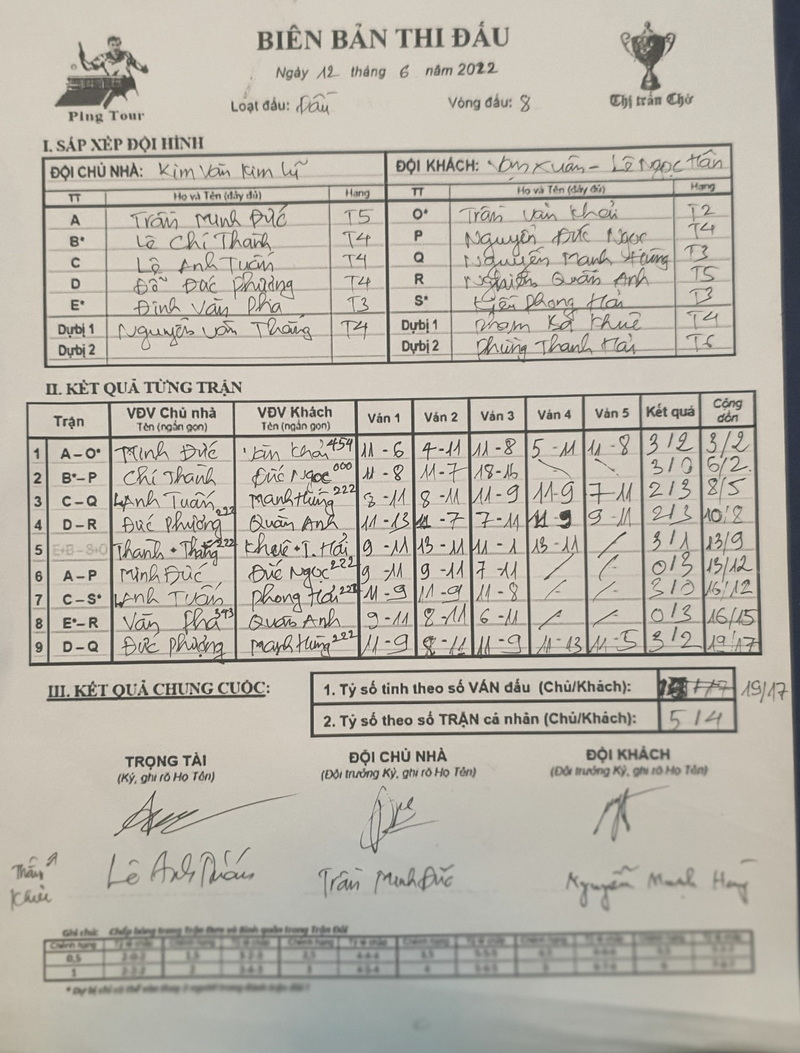 BIÊN BẢN THI ĐẤU
Ngày 12 tháng 6 năm 2022
Ping Tour
Loạt đấu: Vòng đấu: 8
Thị trấn Chờ
I. SẮP XẾP ĐỘI HÌNH
ĐỘI CHỦ NHÀ: Kim Văn Kim Lũ ĐỘI KHÁCH: Xuân - Lê Ngọc Hân
TT Họ và Tên (đầy đủ) Hạng TT Họ và Tên (đầy đủ) Hạng
A Trần Minh Đức T5 O* Trần Văn Khải T2
B* Lê Chí Thành T4 P Nguyễn Đức Ngọc T4
C Lê Anh Tuấn T4 Q Nguyễn Mạnh Hùng T3
D Đỗ Đức Phượng T4 R Quân Anh T5
E* Đinh Văn Pha T3 S* Phong Hải T3
Dựbị 1 Nguyễn Văn Thắng T4 Dựbị 1 Phạm Bá Khuê T4
Dựbị 2 Dựbị 2 Phùng Thanh Hải
II. KẾT QUẢ TỪNG TRẬN
Trận VĐV Chủ nhà Tên (ngắn gọn) VĐV Khách Tên (ngắn gọn) Ván 1 Ván 2 Ván 3 Ván 4 Ván 5 Kết quả Cộng dồn
1 A – O* Minh Đức Văn Khải 454 11 - 6 4 - 11 11 - 8 5 - 11 11 - 8 3/2 3/2
2 B* – P Chí Thành Đức Ngọc 000 11 - 8 11 - 7 18 - 16 3/0 6/2
3 C – Q Anh Tuấn Mạnh Hùng 222 8 - 11 8 - 11 11 - 9 11 - 9 7 - 11 2/3 8/5
4 D – R Đức Phượng Quân Anh 11 - 13 11 - 7 7 - 11 11 - 9 9 - 11 2/3 10/8
5 E+B – S+O Thành + Thắng 222 Khuê + T. Hải 9 - 11 13 - 11 11 - 1 13 - 11 3/1 13/9
6 A – P Minh Đức Đức Ngọc 222 9 - 11 9 - 11 7 - 11 0/3 13/12
7 C – S* Anh Tuấn Phong Hải 11 - 9 11 - 9 11 - 8 3/0 16/12
8 E* – R Văn Pha 343 Quân Anh 9 - 11 8 - 11 6 - 11 0/3 16/15
9 D – Q Đức Phượng Mạnh Hùng 222 11 - 9 8 - 11 11 - 9 11 - 13 11 - 5 3/2 19/17
III. KẾT QUẢ CHUNG CUỘC:
1. Tỷ số tính theo số VÁN đấu (Chủ/Khách): 19/17
2. Tỷ số theo số TRẬN cá nhân (Chủ/Khách): 5/4
TRỌNG TÀI ĐỘI CHỦ NHÀ ĐỘI KHÁCH
(Ký, ghi rõ Họ Tên) (Đội trưởng Ký, ghi rõ Họ Tên) (Đội trưởng Ký, ghi rõ Họ Tên)
Lê Anh Tuấn Trần Minh Đức Nguyễn Mạnh Hùng